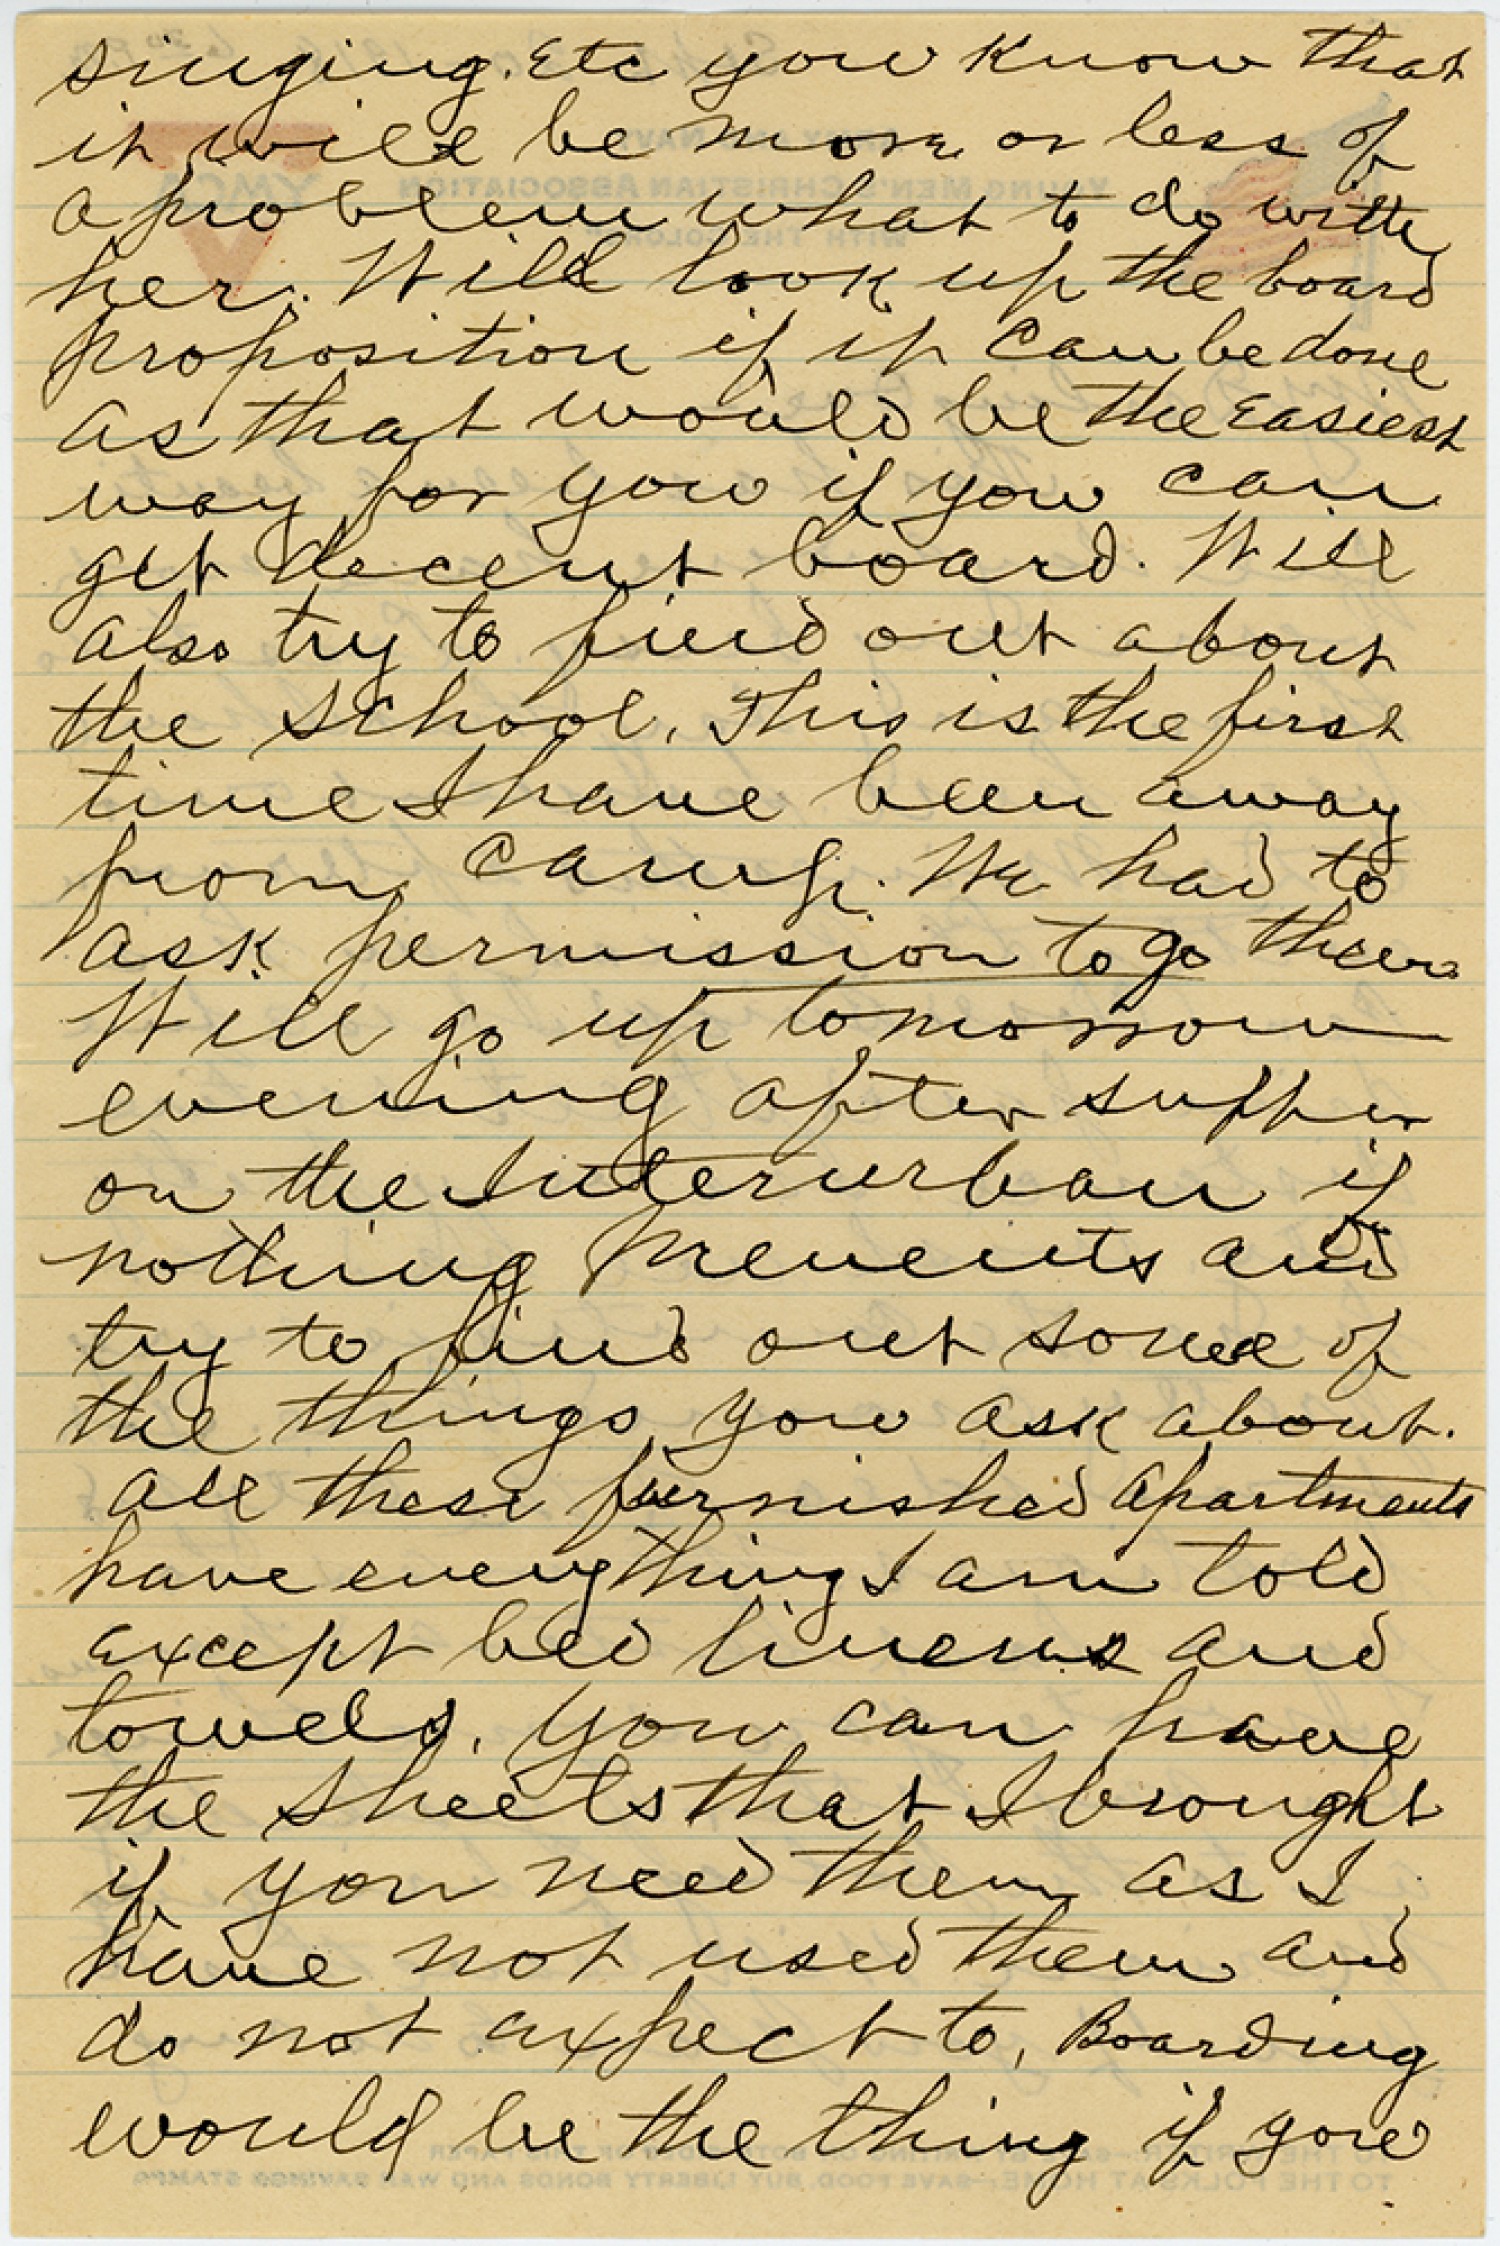 singing. Etc you know that
it will be more or less of
a problem what to do with
her. Will look up the board
proposition if it can be done
as that would be the Easiest
way for you if you can
get decent board. Will
also try to find out about
the school. This is the first
time I have been away
from camp. We had to
ask permission to go there
Will go up tomorrow
evening after supper
on the Interurban if
nothing prevents and
try to find out some of
the things you ask about.
All these furnished apartments
have everything I am told
except bed linens and
towels. You can have
the sheets that I brought
if you need them as I
have not used them and
do not expect to. Boarding
would be the thing if you